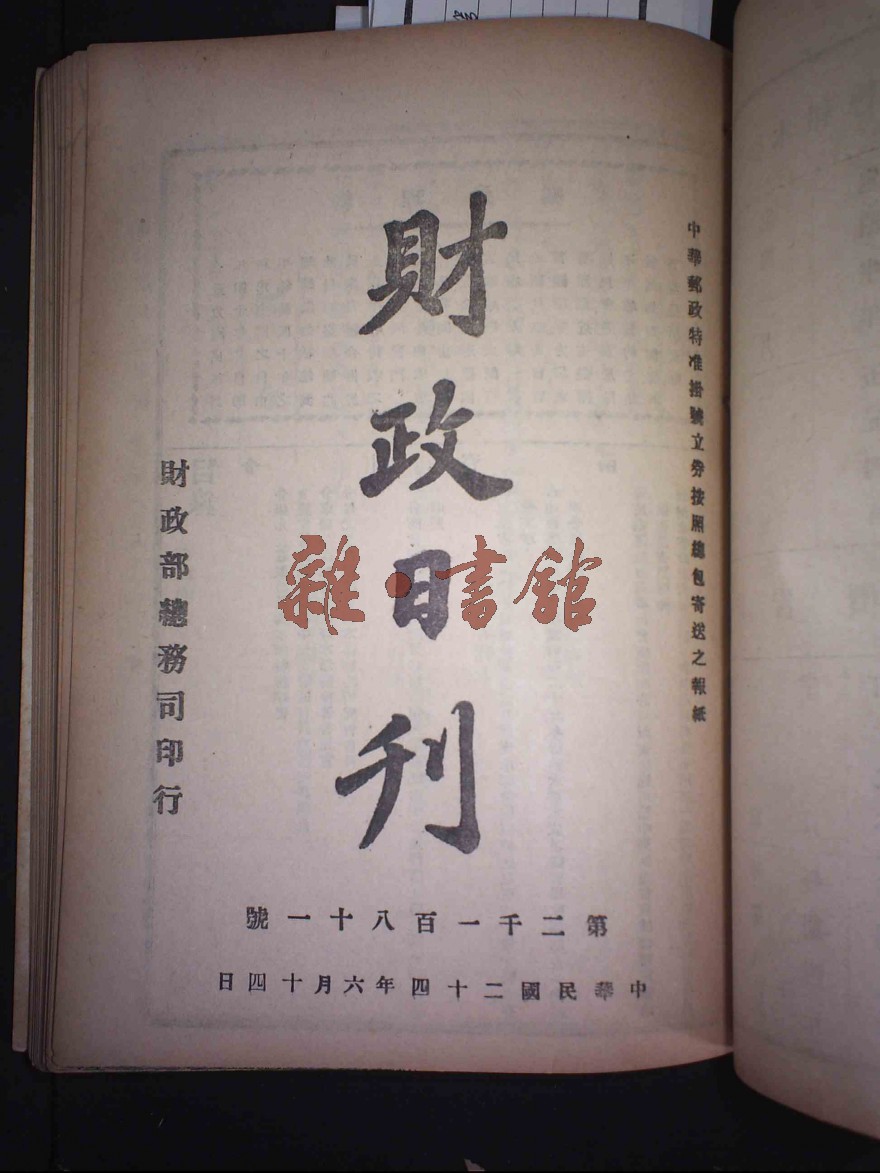 中華郵政特准掛號立劵按照總包寄送之報紙
財政日刊
雜·書館
財政部總務司印行
第二千一百八十一號
中華民國二十四年六月十四日